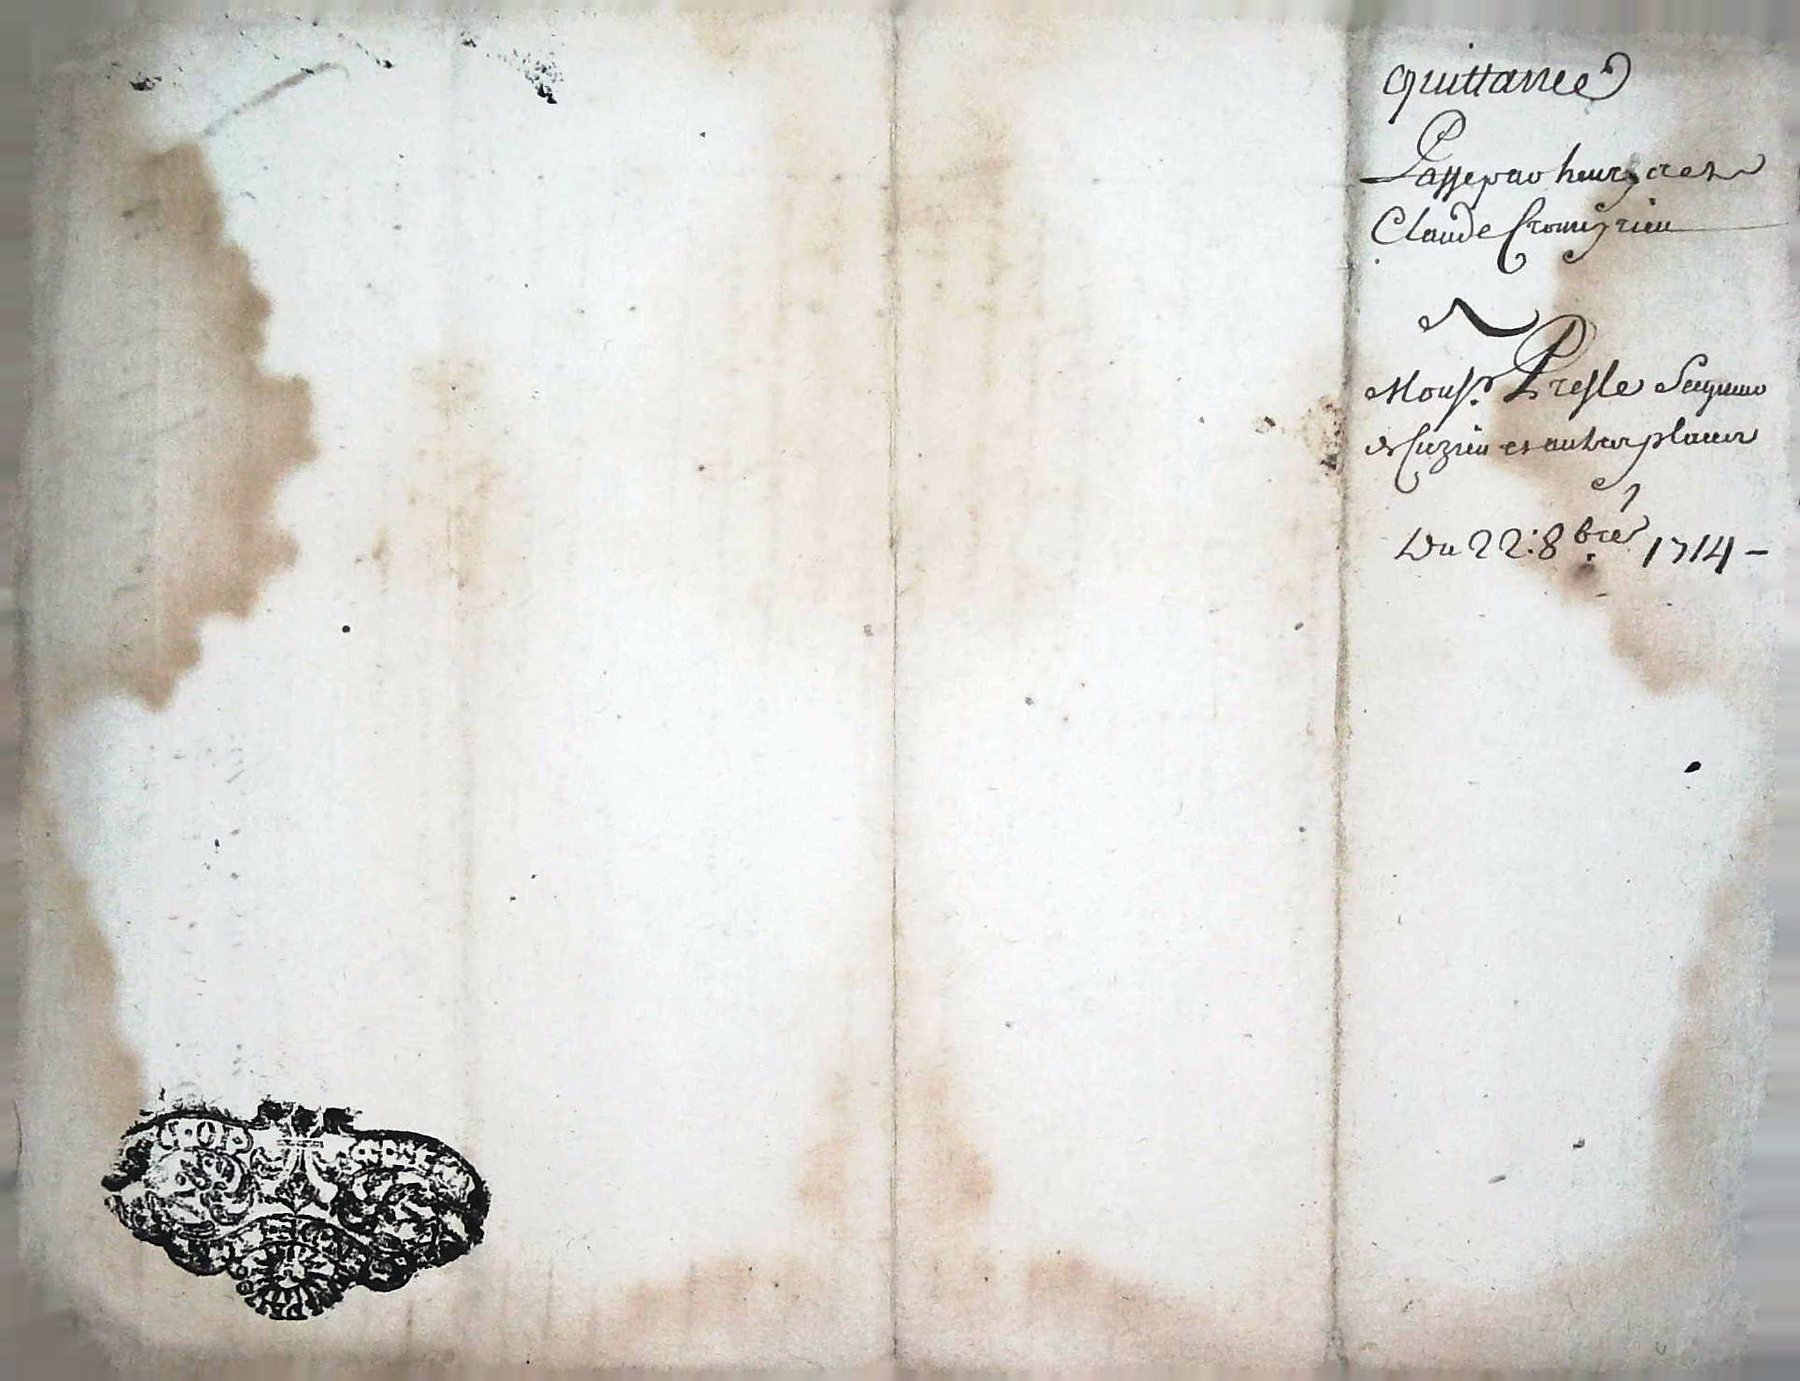 quittance
Passe par heury et
Claude Cromeyrieu
A
Monsr. Presle Seigneur
de Cuzieu et autres places
Du 22: 8bre 1714 -